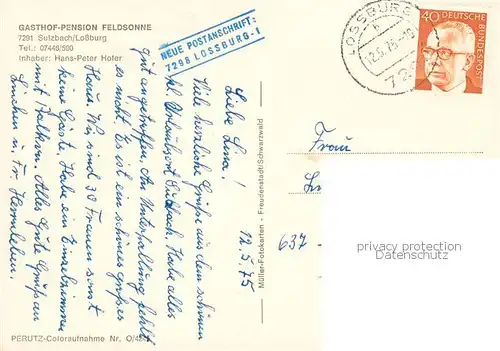 GASTHOF-PENSION FELDSONNE
7291 Sulzbach/Loßburg
Tel.: 07446/590
Inhaber: Hans-Peter Hofer
NEUE POSTANSCHRIFT:
7298 LOSSBURG-1
LOSSBURG
12.5.75-10
40 DEUTSCHE
BUNDESPOST
Liebe Lina!
Viele herzliche Grüße aus dem schönen
kl. Urlaubsort Sulzbach. Habe alles
gut angetroffen, An Unterhaltung fehlt
es nicht. Es ist ein schönes großes
Haus. Wir sind 30 Frauen sonst
keine Gäste. Habe ein Einzelzimmer
mit Balkon. Alles Gute Grüße an
Linchen u. Fr.
12.5.75
Müller-Fotokarten - Freudenstadt/Schwarzwald
Frau
637-
privacy protection
Datenschutz
PERUTZ-Coloraufnahme Nr. O/